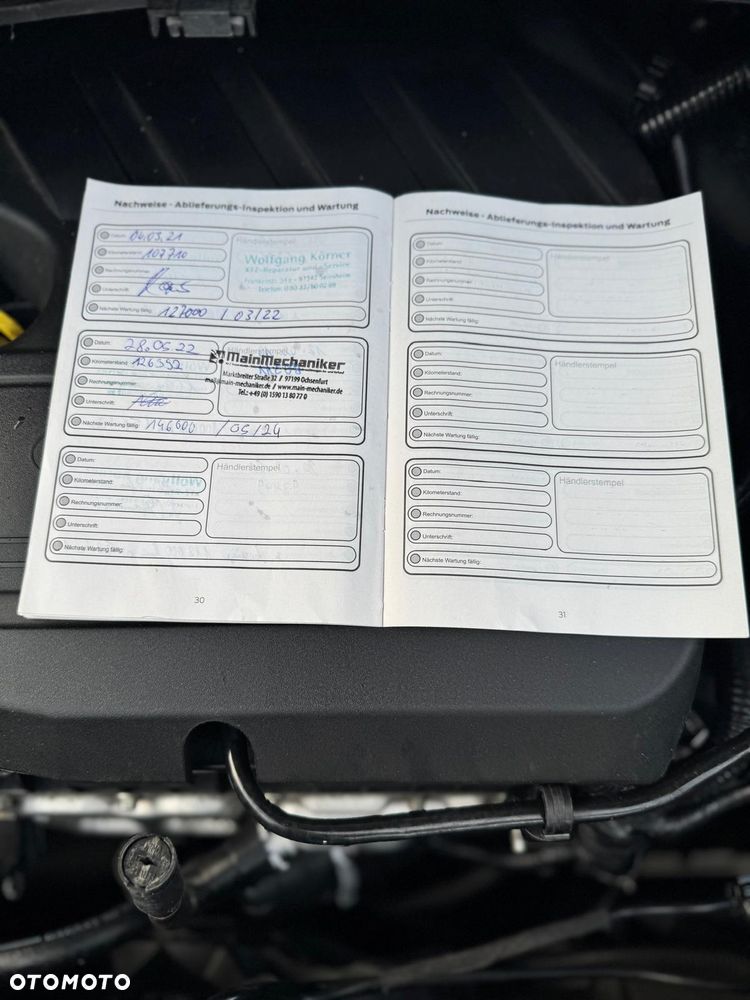 Nachweise - Ablieferungs-Inspektion und Wartung
Datum: 04.03.21
Kilometerstand: 107710
Rechnungsnummer:
Unterschrift:
Nächste Wartung fällig: 127000 / 03/22
Händlerstempel
Wolfgang Körner
KFZ-Reparatur und -Service
Datum: 28.05.22
Kilometerstand: 126552
Rechnungsnummer:
Unterschrift:
Nächste Wartung fällig: 146000 / 05/24
Händlerstempel
MainMechaniker
Marktbreiter Straße 32 / 97199 Ochsenfurt
mail@main-mechaniker.de / www.main-mechaniker.de
Tel.: +49 (0) 1590 13 80 77 0
Datum:
Kilometerstand:
Rechnungsnummer:
Unterschrift:
Nächste Wartung fällig:
Händlerstempel
30
Nachweise - Ablieferungs-Inspektion und Wartung
Datum:
Kilometerstand:
Rechnungsnummer:
Unterschrift:
Nächste Wartung fällig:
Händlerstempel
Datum:
Kilometerstand:
Rechnungsnummer:
Unterschrift:
Nächste Wartung fällig:
Händlerstempel
Datum:
Kilometerstand:
Rechnungsnummer:
Unterschrift:
Nächste Wartung fällig:
Händlerstempel
31
OTOMOTO